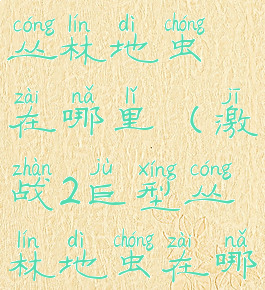 cóng lín dì chóng
丛林地虫
zài nǎ lǐ jī
在哪里(激
zhàn jù xíng cóng
战2巨型丛
lín dì chóng zài nǎ
林地虫在哪